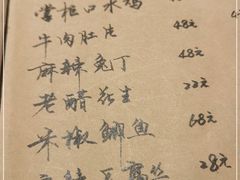 掌柜口水鸡 48元
牛肉肚片 48元
麻辣兔丁 48元
老醋花生 22元
米椒鲫鱼 68元
28元